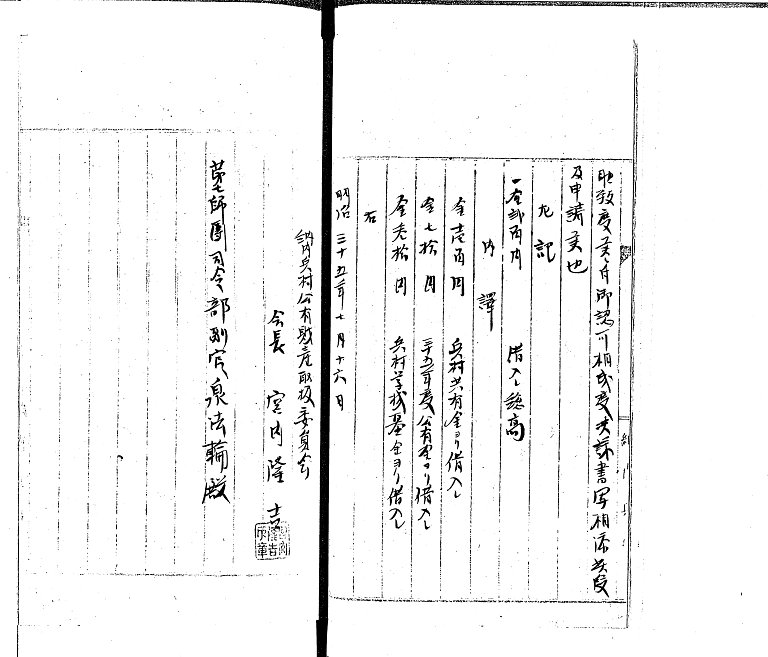 致度候ニ付御認可相成度決議書写相添此段
及申請候也
左記
一金弐百円 借入総高
内訳
金壱百円 兵村共有金ヨリ借入
金七拾円 三十五年度公有金ヨリ借入
金参拾円 兵村学校基金ヨリ借入
右
明治三十五年七月十六日
兵村公有財産取扱委員会
会長 宮内隆吉
第七師団司令部副官 泉法輪殿